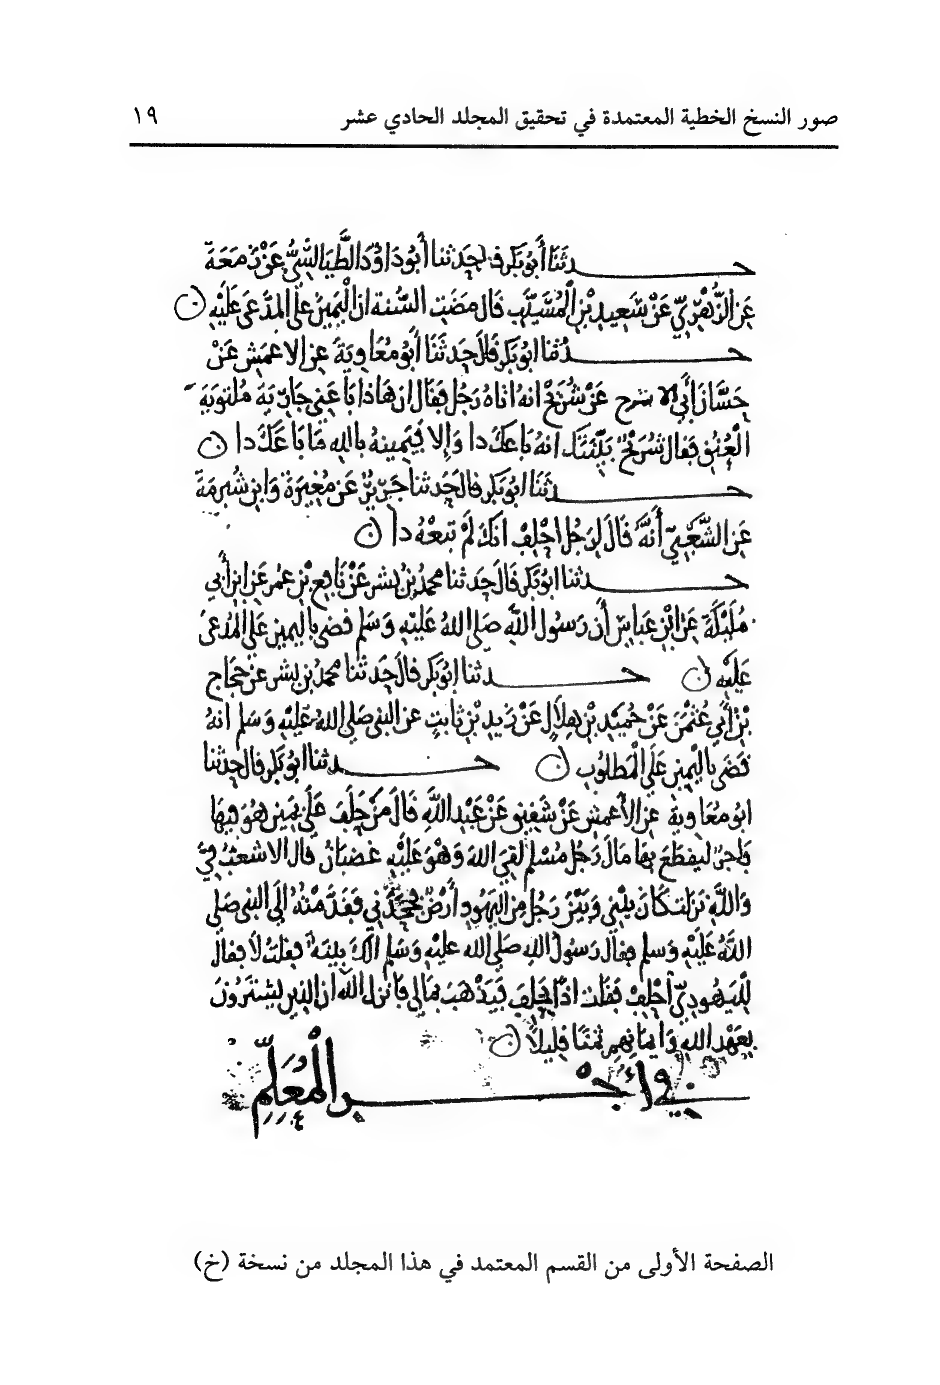 صور النسخ الخطية المعتمدة في تحقيق المجلد الحادي عشر ١٩
حدثنا أبو بكر قال حدثنا أبو داود الطيالسي عن زمعة
عن الزهري عن سعيد بن المسيب قال مضت السنة ان اليمين على المدعى عليه
حدثنا ابو بكر قال حدثنا أبو معاوية عن الاعمش عن
حسان أبي الاشرس عن شريح انه اتاه رجل فقال ان هاذا باعني جارية ملتوية
العنق فقال شريح بينتك انه باعك دا وإلا فيمينه بالله ما باعك دا
حدثنا ابو بكر قال حدثنا جرير عن مغيرة وابن شبرمة
عن الشعبي أنه قال لرجل احلف انك لم تبعه دا
حدثنا ابو بكر قال حدثنا محمد بن بشر عن نافع بن عمر عن ابن أبي
مليكة عن ابن عباس أن رسول الله صلى الله عليه وسلم قضى باليمين على المدعى
عليه حدثنا ابو بكر قال حدثنا محمد بن بشر عن حجاج
بن أبي عثمن عن حميد بن هلال عن زيد بن ثابت عن النبي صلى الله عليه وسلم انه
قضى باليمين على المطلوب حدثنا ابو بكر قال حدثنا
ابو معاوية عن الأعمش عن شقيق عن عبد الله قال من حلف على يمين هو فيها
فاجر ليقطع بها مال رجل مسلم لقي الله وهو عليه غضبان قال الاشعث في
والله نزلت كان بيني وبين رجل من اليهود أرض فجحدني فقدمته إلى النبي صلى
الله عليه وسلم فقال رسول الله صلى الله عليه وسلم الك بينة فقلت لا فقال
لليهودي احلف فقلت اذا يحلف فيذهب بمالي فانزل الله ان الذين يشترون
بعهد الله وايمانهم ثمنا قليلا
في أجر المعلم
الصفحة الأولى من القسم المعتمد في هذا المجلد من نسخة (خ)